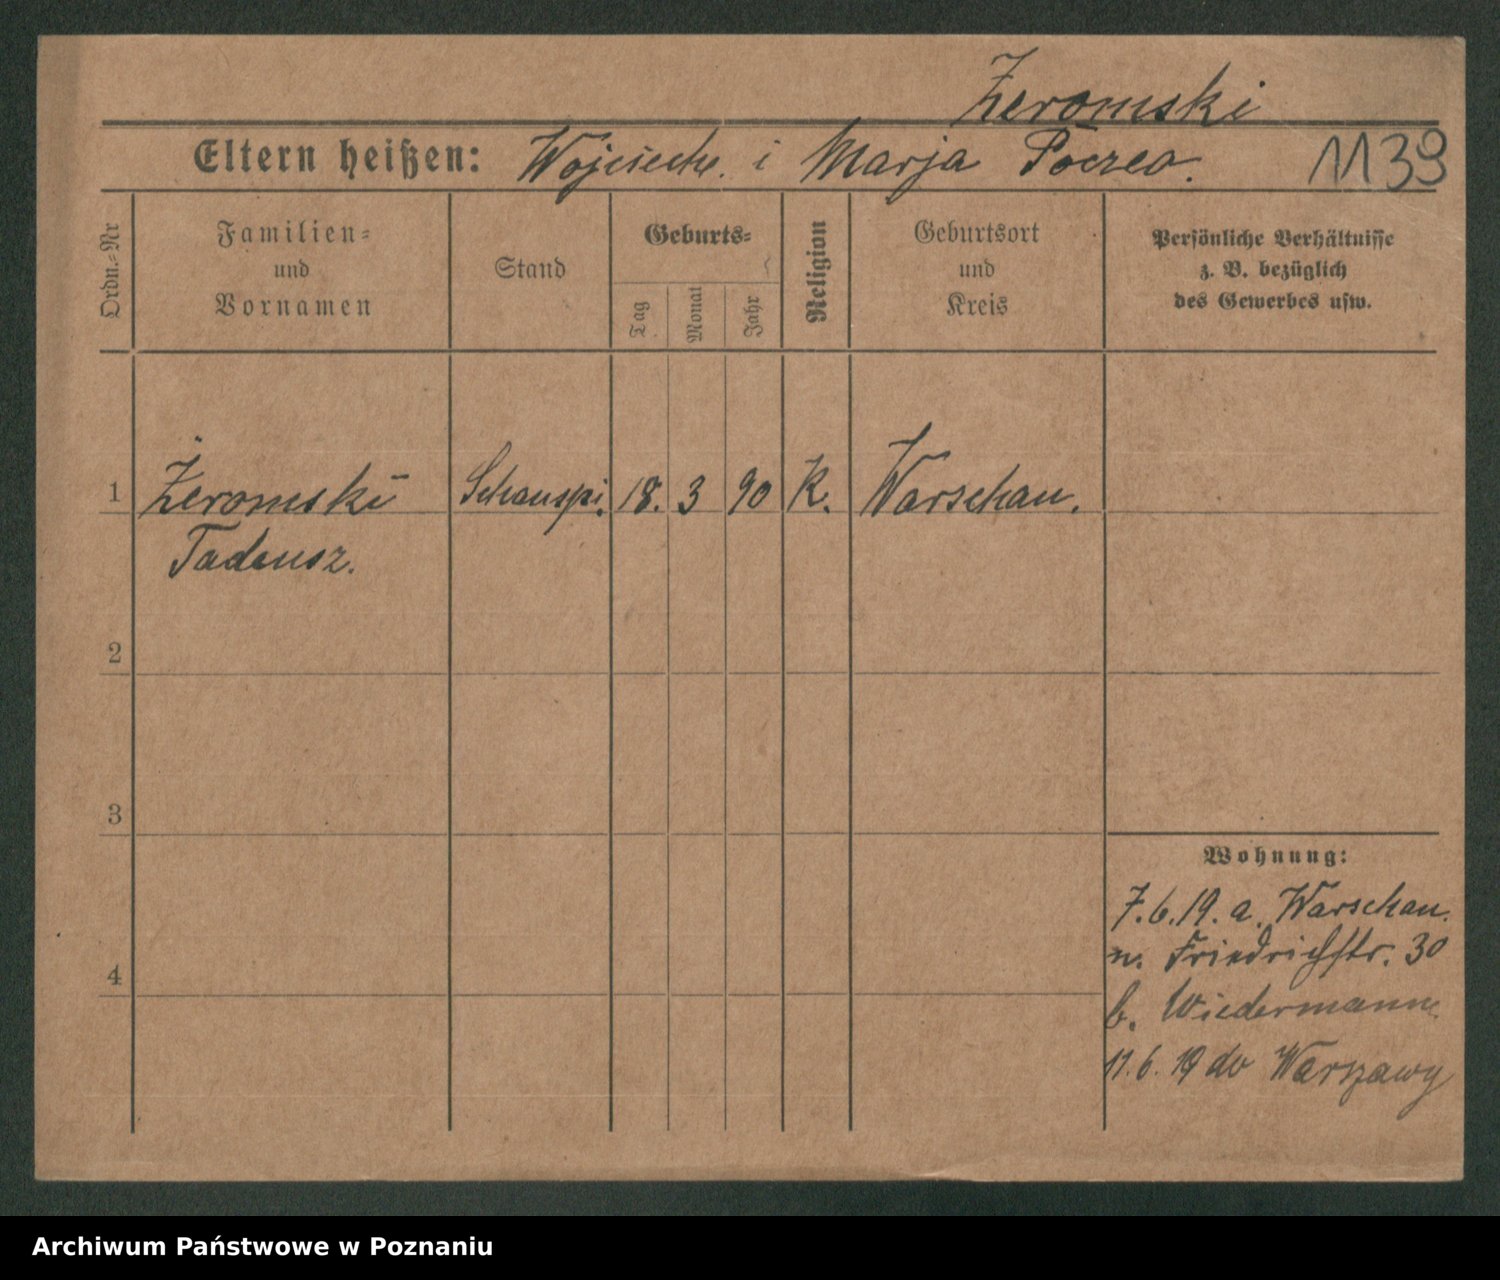 Żeromski
Eltern heißen: Wojciech i Marja
1139
Ordn.-Nr
Familien-
und
Vornamen
Stand
Geburts-
Tag
Monat
Jahr
Religion
Geburtsort
und
Kreis
Persönliche Verhältnisse
z. B. bezüglich
des Gewerbes usw.
1 Żeromski Schauspi. 18. 3 90 K. Warschau.
Tadeusz.
2
3
4
Wohnung:
7.6.19. a. Warschau.
n. Friedrichstr. 30
b. Wiedermann
11.6.19 do Warszawy
Archiwum Państwowe w Poznaniu